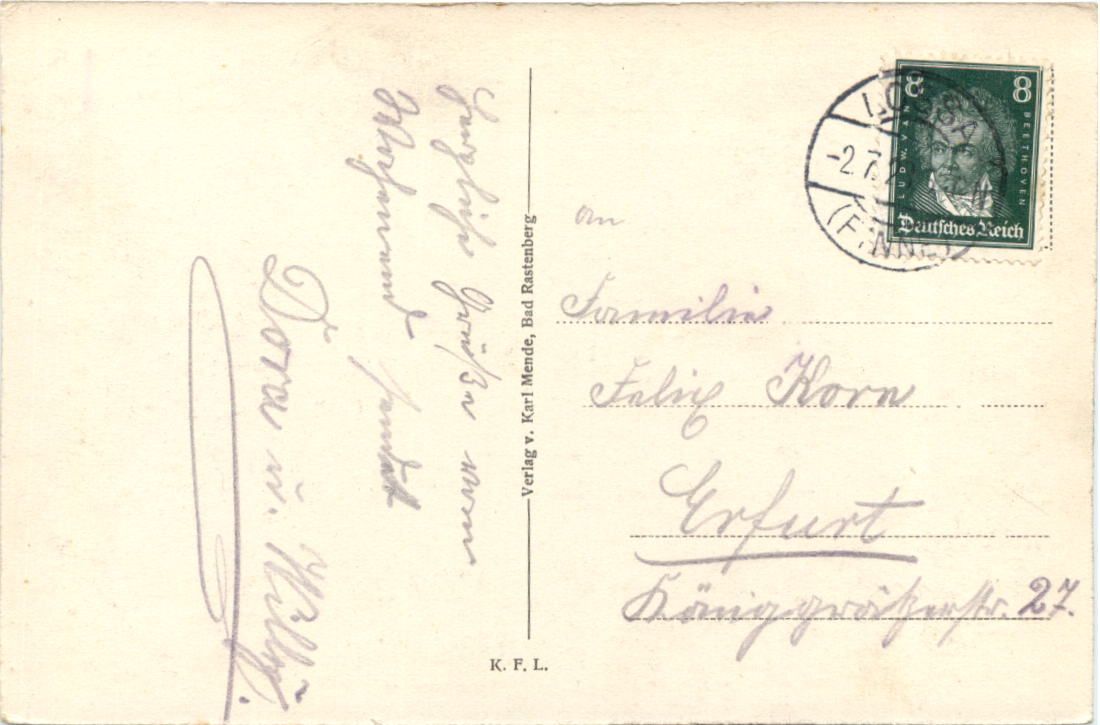 Herzliche Grüße vom
Wochenend sendet
Dora u. Willy.
Verlag v. Karl Mende, Bad Rastenberg
K. F. L.
8 8
LUDW. VAN BEETHOVEN
Deutsches Reich
LOSSA
-2.7.2
(FINNE)
An
Familie
Felix Korn
Erfurt
Königgrätzerstr. 27.